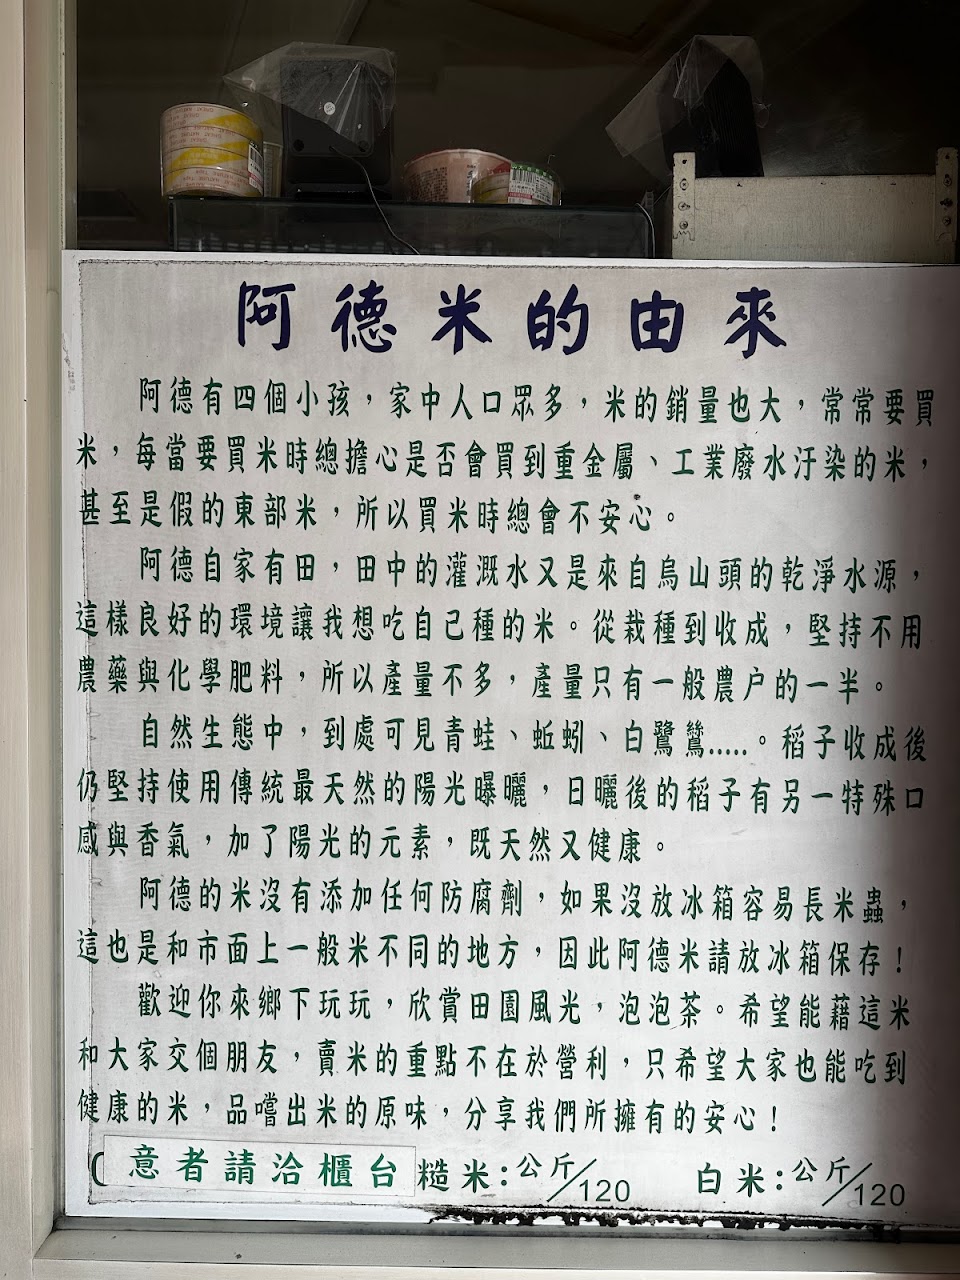 阿德米的由來
阿德有四個小孩，家中人口眾多，米的銷量也大，常常要買
米，每當要買米時總擔心是否會買到重金屬、工業廢水汙染的米，
甚至是假的東部米，所以買米時總會不安心。
阿德自家有田，田中的灌溉水又是來自烏山頭的乾淨水源，
這樣良好的環境讓我想吃自己種的米。從栽種到收成，堅持不用
農藥與化學肥料，所以產量不多，產量只有一般農戶的一半。
自然生態中，到處可見青蛙、蚯蚓、白鷺鷥.....。稻子收成後
仍堅持使用傳統最天然的陽光曝曬，日曬後的稻子有另一特殊口
感與香氣，加了陽光的元素，既天然又健康。
阿德的米沒有添加任何防腐劑，如果沒放冰箱容易長米蟲，
這也是和市面上一般米不同的地方，因此阿德米請放冰箱保存！
歡迎你來鄉下玩玩，欣賞田園風光，泡泡茶。希望能藉這米
和大家交個朋友，賣米的重點不在於營利，只希望大家也能吃到
健康的米，品嚐出米的原味，分享我們所擁有的安心！
意者請洽櫃台 糙米：公斤/120 白米：公斤/120